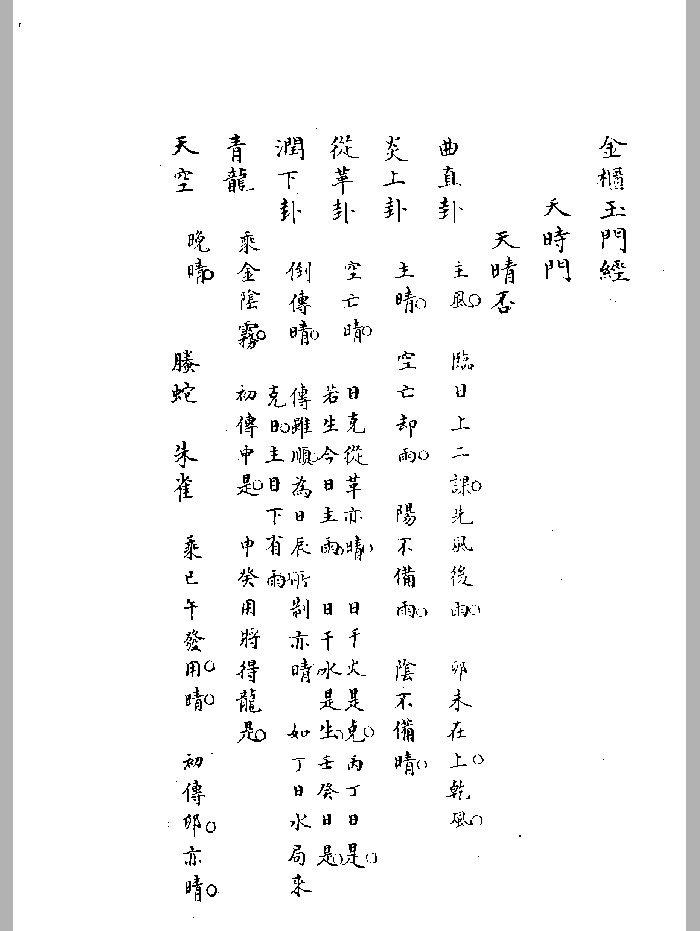 金櫃玉門經
天時門
天晴否
曲直卦 主風。 臨日上二課。先風後雨。 卯未在上。乾風。
炎上卦 主晴。 空亡却雨。 陽不備雨。 陰不備晴。
從革卦 空亡晴。 日克從革亦晴。 日干火是克。丙丁日是。
若生今日主雨。 日干水是生。壬癸日是。
潤下卦 倒傳晴。 傳雖順。為日辰所制亦晴 如丁日水局來
克日。主日下有雨
青龍 乘金陰霧。 初傳申是。 申發用將得龍是。
天空 晚晴。 螣蛇 朱雀 乘巳午發用。晴。 初傳卯。亦晴。